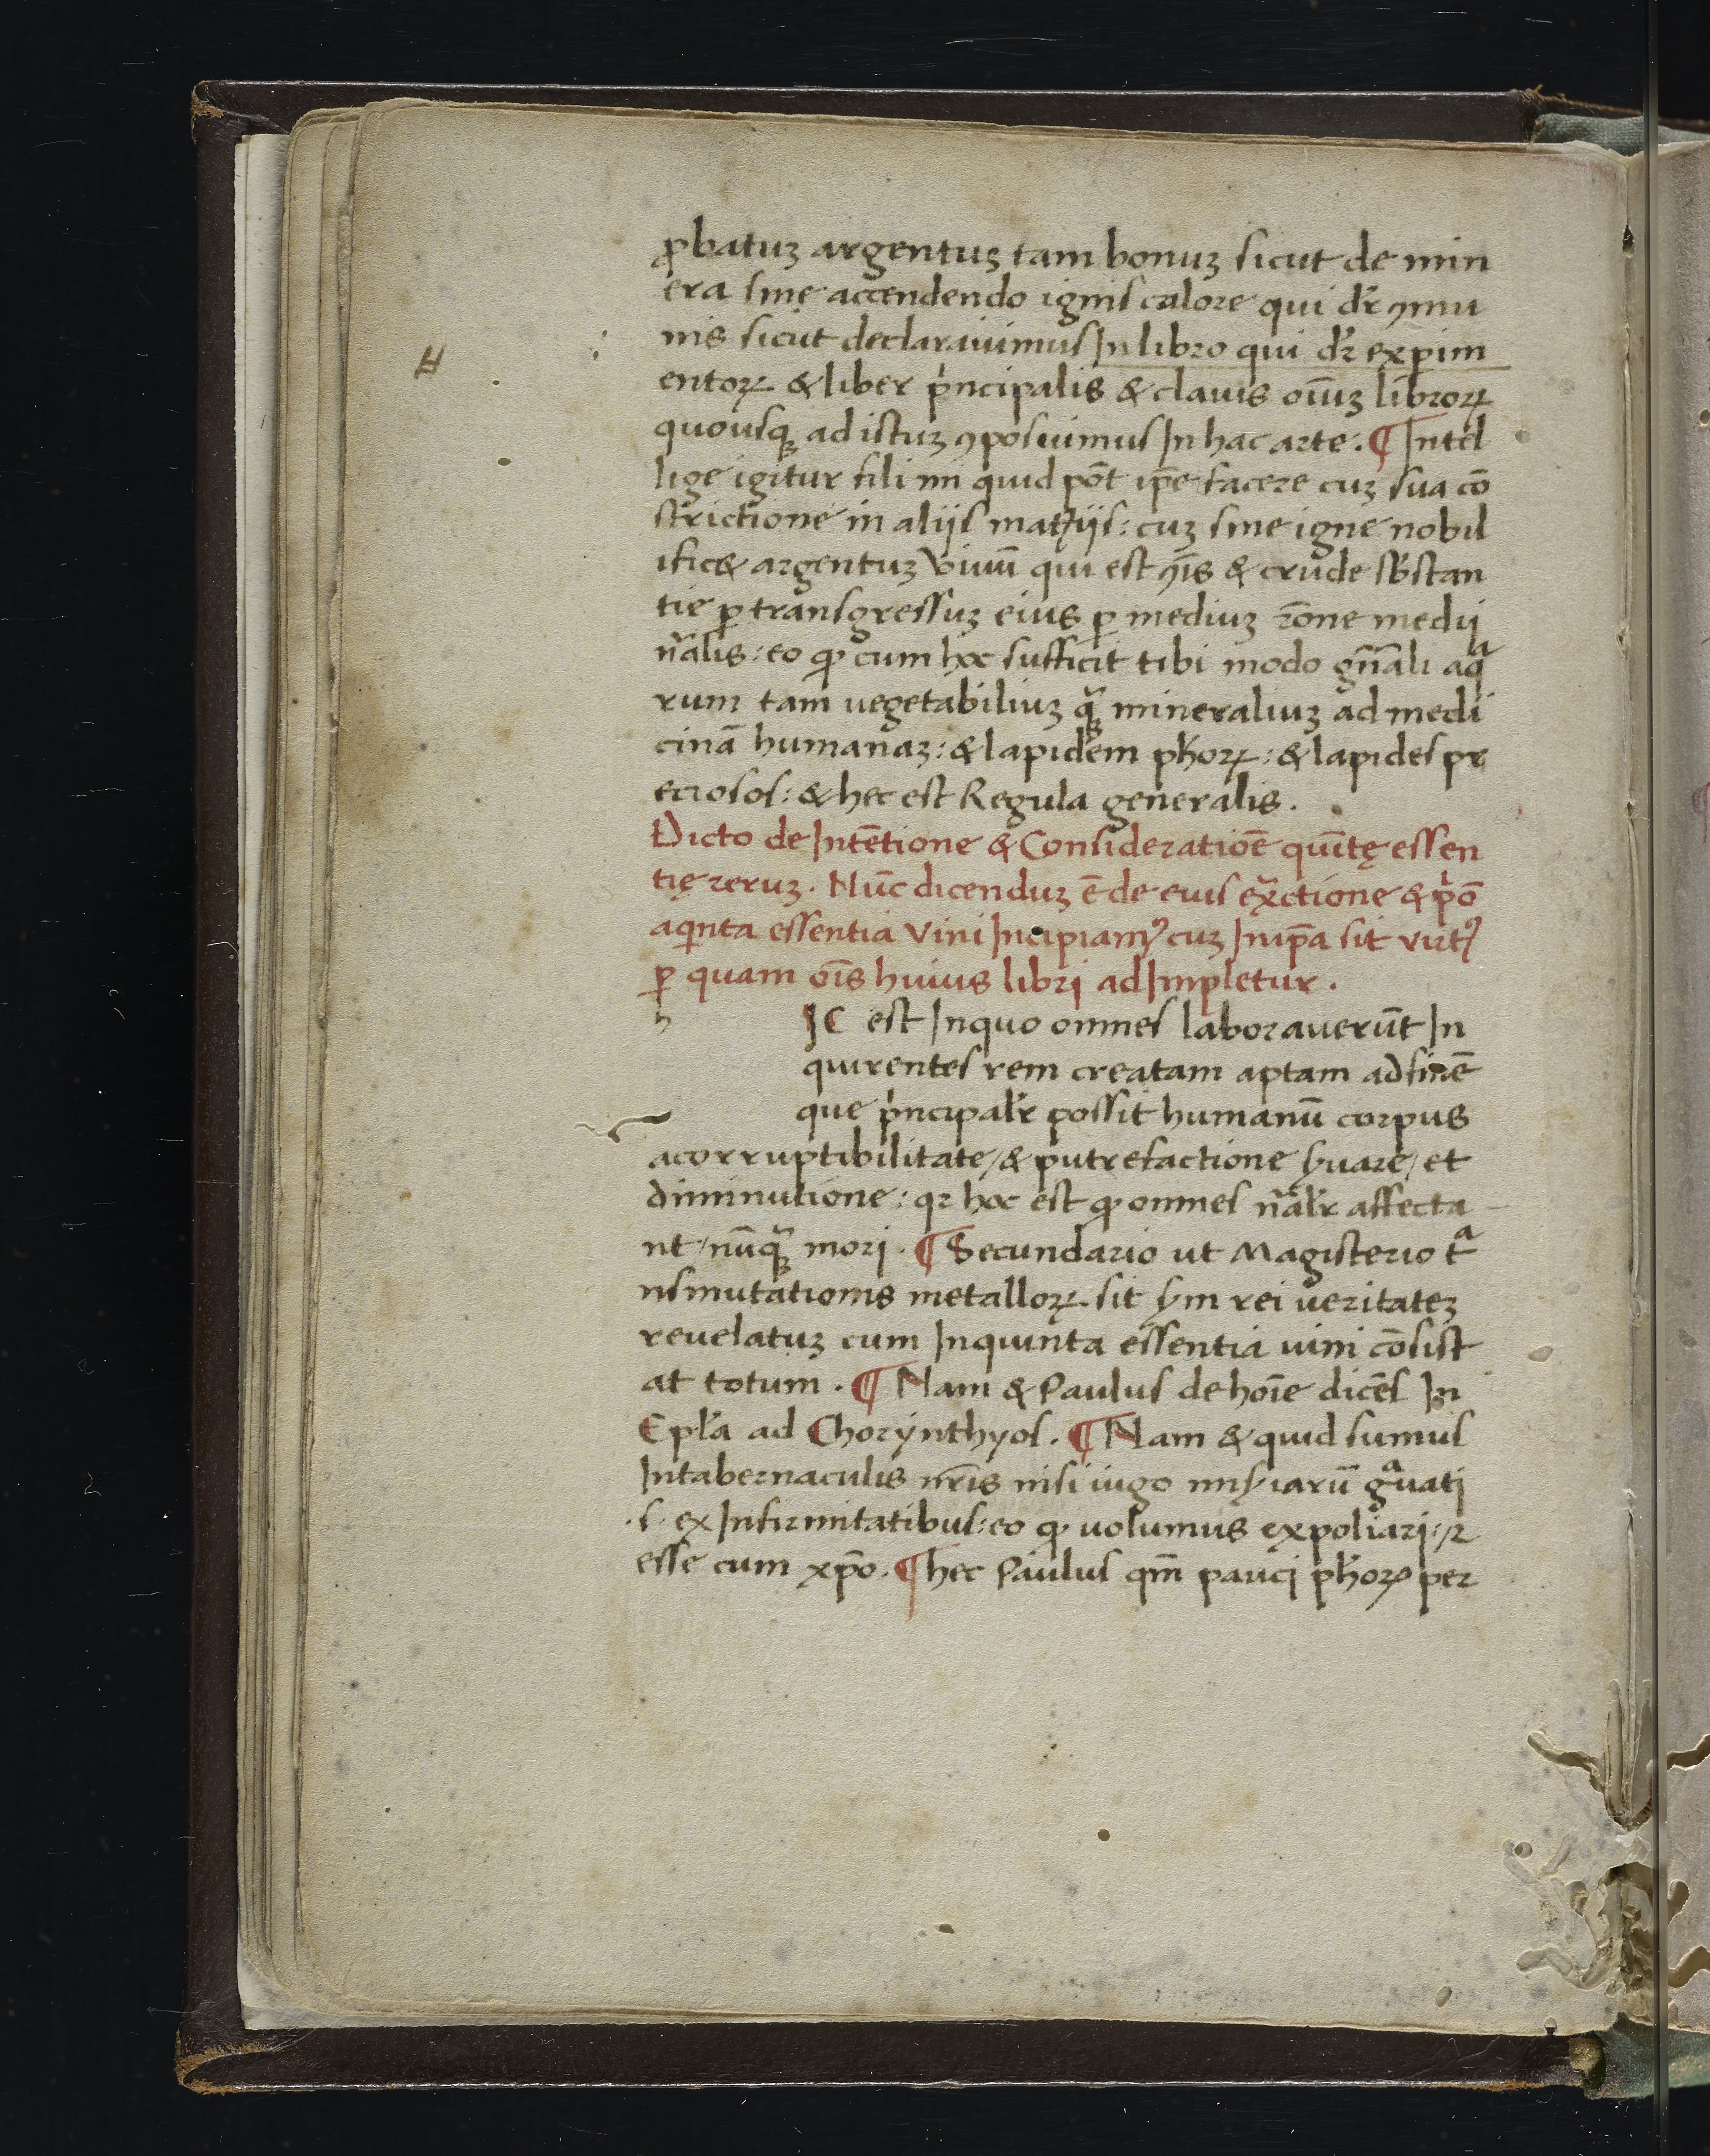 ꝓbatuꝫ argentuꝫ tam bonuꝫ sicut de min
era sine accendendo ignis calore qui dr̄ ꝯmu
nis sicut declarauimus In libro qui dr̄ exꝑim
entoꝝ & liber pⁱncipalis & clauis oīuꝫ libroꝝ
quousqꝫ ad istuꝫ ꝯposuimus In hac arte. ¶ Intel
lige igitur fili mi quid pōt ip̄e facere cuꝫ sua cō
strictione in aliis mat̄iis: cuꝫ sine igne nobil
ific& argentuꝫ viuū qui est ꝯ̄is & crude sb̄stan
tie ꝑ transgressuꝫ eius ꝑ mediuꝫ rōne medij
nālis: eo ꝙ cum hoc sufficit tibi modo gn̄ali aqᵃ
rum tam uegetabiliuꝫ qᵃꝫ mineraliuꝫ ad medi
cinā humanaꝫ: & lapidem ph̄oꝝ: & lapides pr
eciosos: & hec est Regula generalis.
Dicto de Intētione & Consideratiōe quītę essen
tię reruꝫ. Nūc dicenduꝫ ē de eius exᵃctione & pⁱō
aqinta essentia vini Incipiamꝰ cuꝫ In ip̄a sit virtꝰ
ꝑ quam oīs huius libri adImpletur.
h IC est Inquo omnes laborauerūt In
quirentes rem creatam aptam ad finē
que pⁱncipalr̄ possit humanū corpus
acorruptibilitate / & putrefactione s̄uare / et
diminutione: qꝛ hoc est ꝙ omnes nāl̄r affecta
nt / nūqᵃꝫ mori. ¶ Secundario ut Magisterio tᵃ
nsmutationis metalloꝝ. sit s̄m rei ueritateꝫ
reuelatuꝫ cum Inquinta essentia uini cōsist
at totum. ¶ Nam & Paulus de hoīe dicēs In
Epl̄a ad Chorynthyos. ¶ Nam & quid sumus
Intabernaculis nr̄is nisi iugo mis̄iarū gᵃuati
.s. ex Infirmitatibus: eo ꝙ uolumus expoliari: ⁊
esse cum xp̄o. ¶ hec Paulus qm̄ pauci ph̄oꝝ per